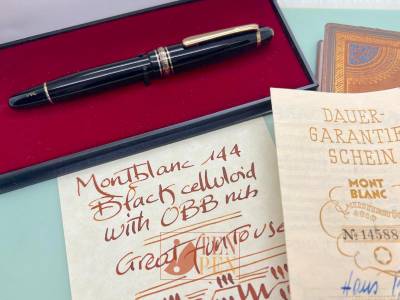 Montblanc 144
Black celluloid
with OBB nib
Great
PEN
DAUER-
GARANTIE
SCHEIN
MONT
BLANC
MEISTERSTÜCK
No 14588
Hans